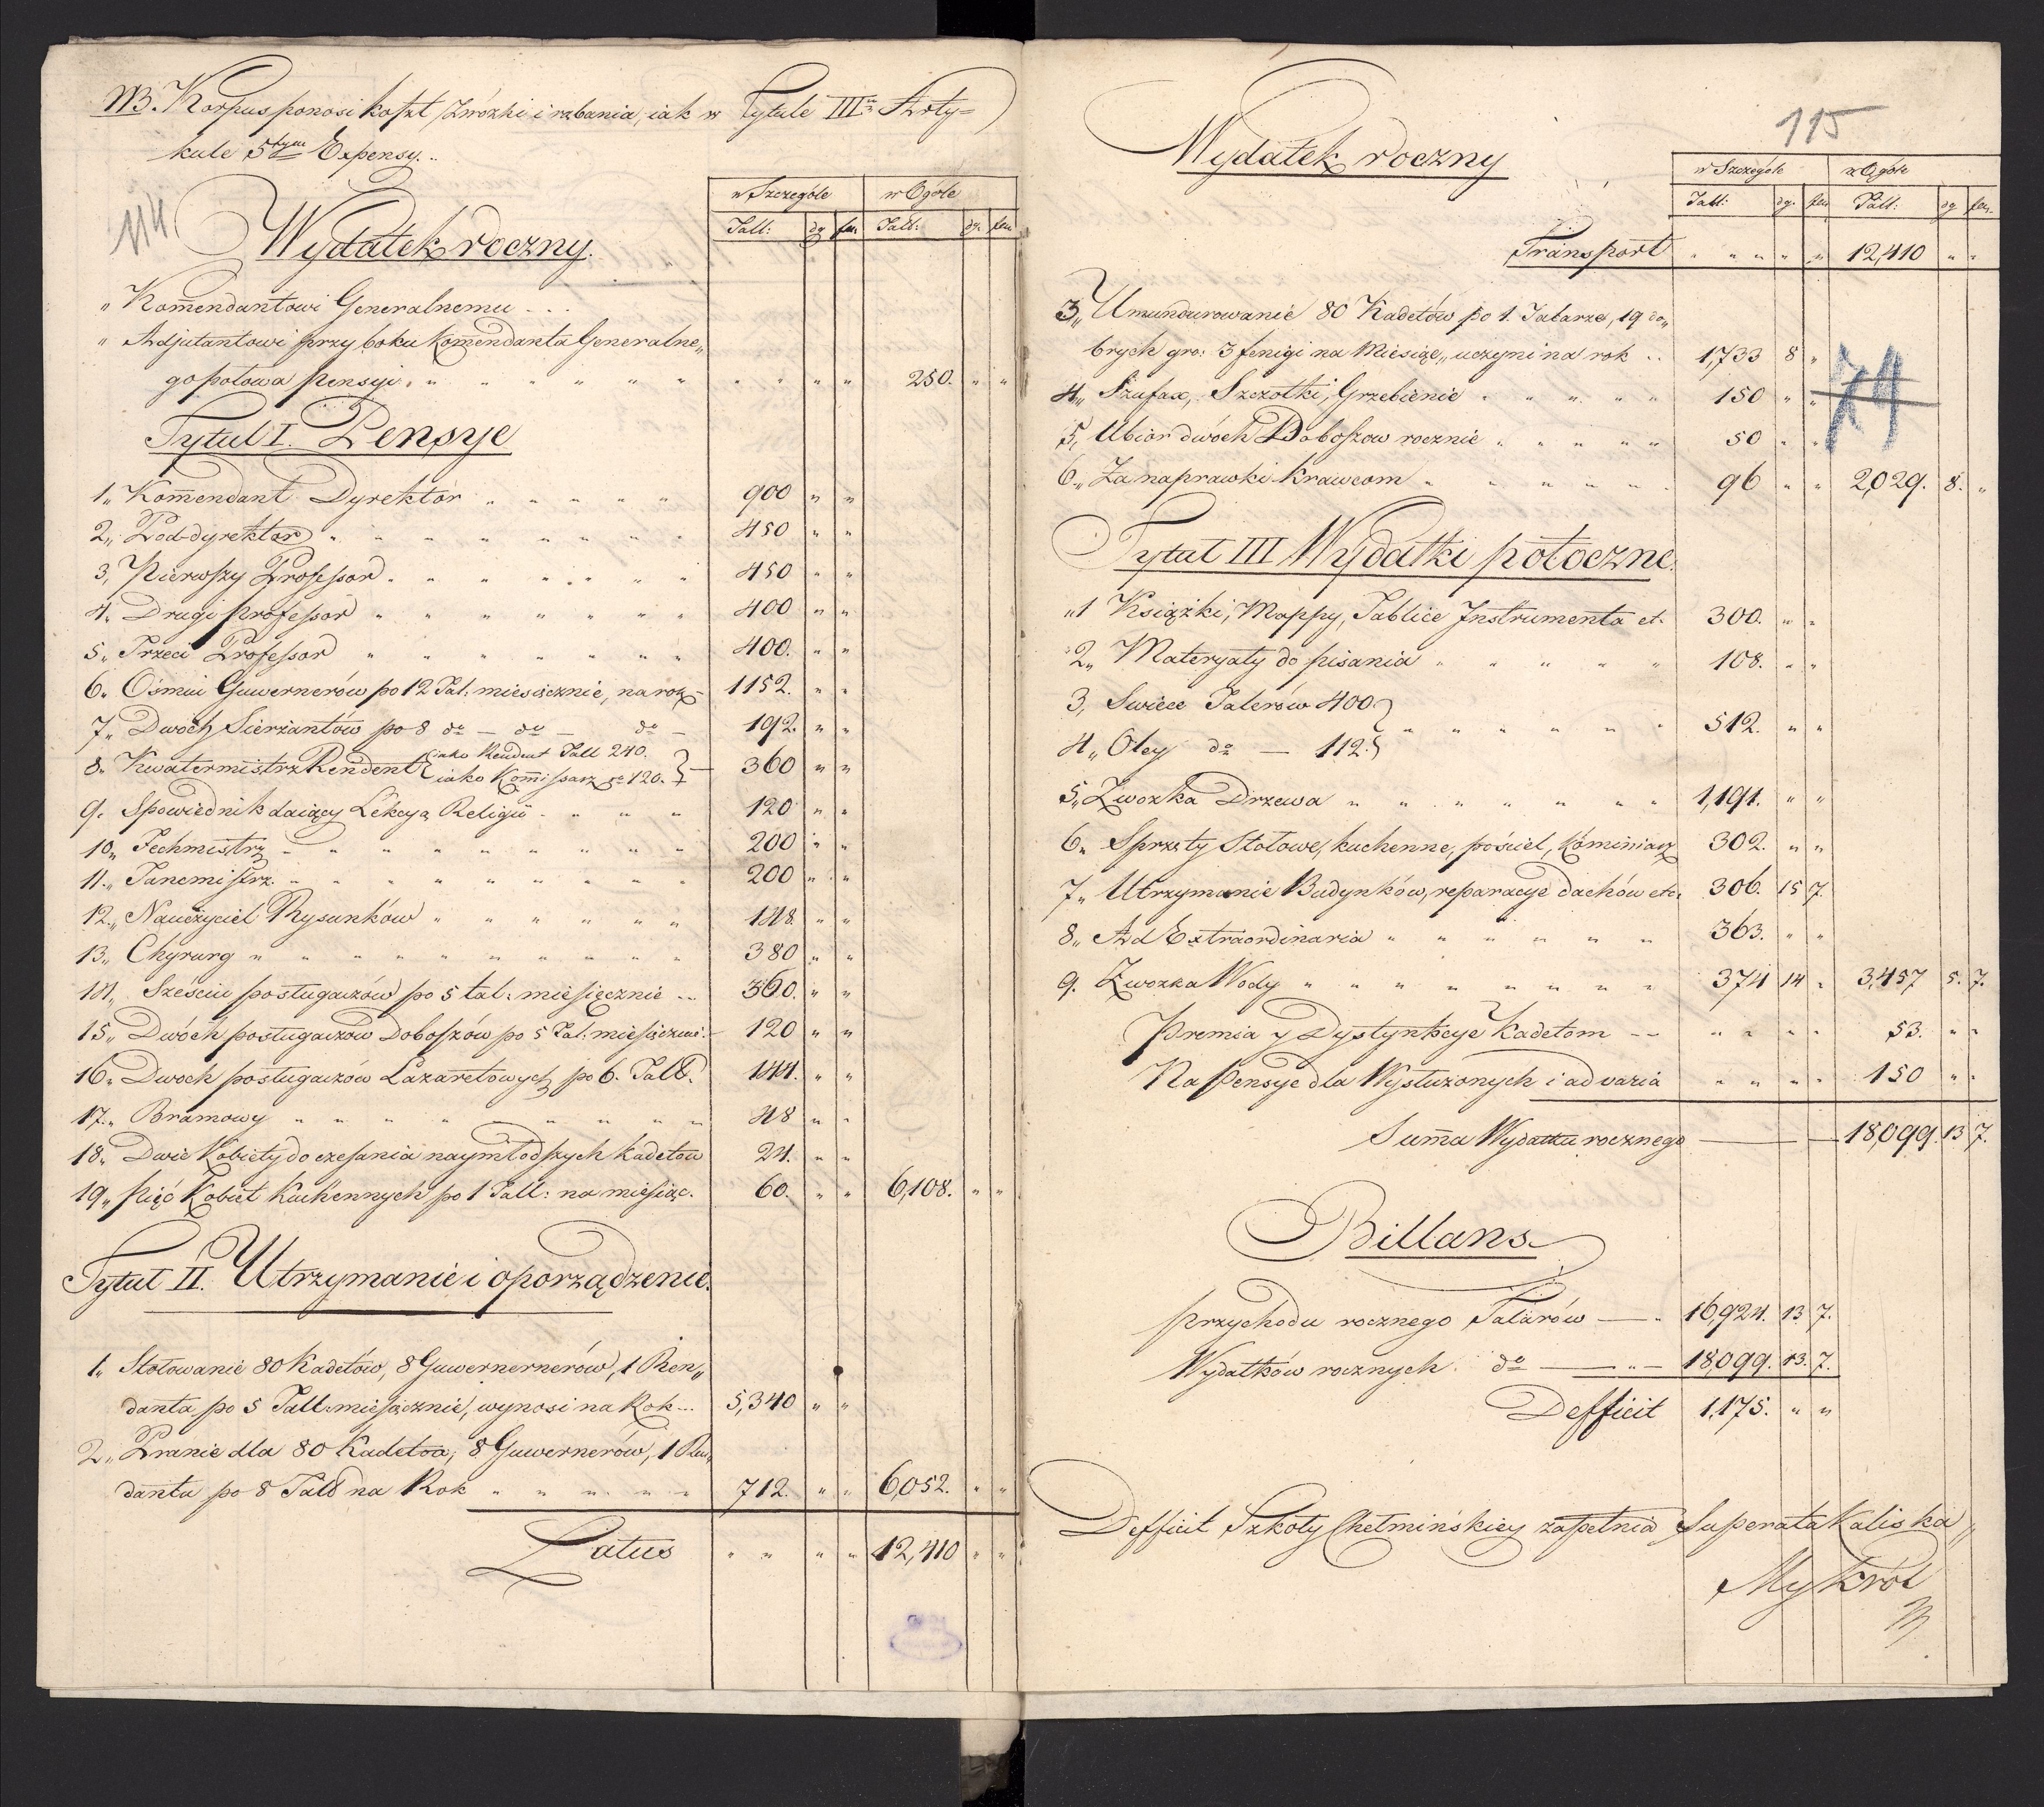 NB. Korpus ponosi koszt Zwózki i rąbania, iak w Tytule IIIm Arty=
kule 5tym Expensy..
114
w Szczególe w Ogóle
Tall: dg fen Tall: dg. fen
Wydatek roczny.
„ Kom̄endantowi Generalnemu . . .
„ Adjutantowi przy boku Kom̄endanta Generalne„
go połowa pensyi. „ „ „ „ „ „ „ „ „ „ 250. „ „
Tytuł I. Pensye
1„ Kom̄endant Dyrektor „ „ „ „ „ 900 „ „
2„ Pod-dyrektor „ „ „ „ „ „ „ „ 450 „ „
3„ Pierwszy Professor „ „ „ „ „ „ „ 450 „ „
4„ Drugi professor „ „ „ „ „ „ „ 400 „ „
5„ Trzeci Professor „ „ „ „ „ „ „ 400. „ „
6„ Ośmiu Guwernerów po 12 Tal: miesięcznie, na rok – 1152. „ „
7„ Dwóch Sierżantów po 8 do — do — do – 192. „ „
8„ Kwatermistrz Rendent { iako Rendent Tall 240.
iako Kom̄issarz do 120. } – 360 „ „
9. Spowiednik daiący Lekcyą Religii „ „ „ „ 120 „ „
10„ Fechmistrz „ „ „ „ „ „ „ „ „ 200 „ „
11„ Tancmistrz „ „ „ „ „ „ „ „ „ 200 „ „
12„ Nauczyciel Rysunków „ „ „ „ „ „ 148. „ „
13„ Chyrurg „ „ „ „ „ „ „ „ „ „ 380 „ „
14„ Sześciu posługaczów po 5 tal: miesięcznie .. 360. „ „
15„ Dwóch posługaczów Doboszów po 5 Tal: miesięcznie. 120 „ „
16„ Dwoch posługaczów Lazaretowych po 6. Tall. 144. „ „
17„ Bramowy „ „ „ „ „ „ „ „ „ 48 „ „
18„ Dwie Kobiety do czesania naymłodszych kadetow 24. „ „
19„ pięć Kobiet Kuchennych po 1 Tall: na miesiąc. 60. „ „ 6,108. „ „
Tytuł II. Utrzymanie i oporządzenie.
1„ Stołowanie 80 Kadetów, 8 Guwernernerów, 1 Ren„
danta po 5 Tall: miesięcznie, wynosi na Rok ... 5,340 „ „
2„ Pranie dla 80 Kadetow, 8 Guwernerów, 1 Ren„
danta po 8 Tall na Rok „ „ „ „ „ 712. „ „ 6,052. „ „
Latus „ „ „ „ 12,410 „ „
115
Wydatek roczny
w Szczególe w Ogóle
Tall: dg. fen Tall: dg fen.
Transport „ „ „ „ „ 12,410 „ „
3„ Umundurowanie 80 Kadetów po 1. Talarze, 19 do„
brych gro: 3 fenigi na Miesiąc„ uczyni na rok .. 1,733 8 „
74
4„ Szufax, Szczotki, Grzebienie „ „ „ „ „ 150 „ „
5„ Ubior dwóch Doboszow rocznie „ „ „ „ „ 50 „ „
6„ Za naprawki Krawcom „ „ „ „ „ „ 96 „ „ 2,029. 8. „
Tytuł III Wydatki potoczne.
„1 Książki, Mappy, Tablice Instrumenta et. 300. „ „
2„ Materyały do pisania „ „ „ „ „ 108. „ „
3„ Swiece Talerów 400 }
4„ Oley do — 112. } „ „ „ „ „ „ 512. „ „
5„ Zwozka Drzewa „ „ „ „ „ „ „ 1,191. „ „
6„ Sprzęty Stołowe, kuchenne, pościel, Kominiarz 302. „ „
7„ Utrzymanie Budynków, reparacye dachów etc. 306. 15 7.
8„ Ad Extraordinaria „ „ „ „ „ „ 363. „ „
9. Zwozka Wody „ „ „ „ „ „ „ „ 374 14 „ 3,457 5. 7.
Premia y Dystynkcye Kadetom .. „ „ „ „ 53. „ „
Na pensye dla Wysłużonych i ad varia „ „ „ „ 150 „ „
Sum̄a Wydatku rocznego — — 18,099. 13 7.
Billans
przychodu rocznego Talarów —. 16,924. 13. 7.
Wydatków rocznych do — „ — 18,099. 13. 7.
Defficit 1,175. „ „
Defficit Szkoły Chełmińskiey zapełnia Superata Kaliska„
My Król